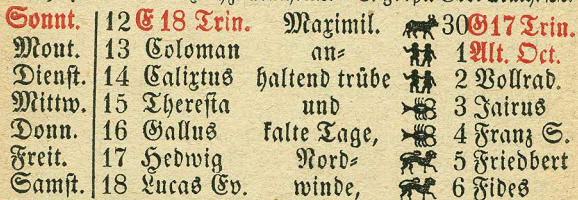 Sonnt. 12 E 18 Trin. Maximil. 30 G 17 Trin.
Mont. 13 Coloman an= 1 Alt. Oct.
Dienst. 14 Calixtus haltend trübe 2 Vollrad.
Mittw. 15 Theresia und 3 Jairus
Donn. 16 Gallus kalte Tage, 4 Franz S.
Freit. 17 Hedwig Nord= 5 Friedbert
Samst. 18 Lucas Ev. winde, 6 Fides